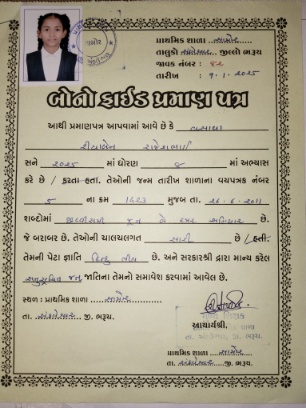 પ્રાથમિક શાળા સામોર
તાલુકો અંકલેશ્વર જીલ્લો ભરૂચ
જાવક નંબર : ૪૨
તારીખ : ૧-૧-૨૦૨૫
બોનોફાઈડ પ્રમાણ પત્ર
આથી પ્રમાણપત્ર આપવામાં આવે છે કે વસાવા
સને ૨૦૨૫ માં ધોરણ ૮ માં અભ્યાસ
કરે છે / કરતા હતા. તેઓની જન્મ તારીખ શાળાના વયપત્રક નંબર
૫ ના ક્રમ ૧૮૨૩ મુજબ તા. ૨૬-૬-૨૦૧૧
શબ્દોમાં છવ્વીસમી જુન બે હજાર અગિયાર છે.
જે બરાબર છે. તેઓની ચાલચલગત સારી છે / હતી.
તેમની પેટા જ્ઞાતિ હિન્દુ ભીલ છે. અને સરકારશ્રી દ્વારા માન્ય કરેલ
અનુસુચિત જન જાતિના તેમનો સમાવેશ કરવામાં આવેલ છે.
સ્થળ : પ્રાથમિક શાળા સામોર
તા. અંકલેશ્વર જી. ભરૂચ.
આચાર્યશ્રી,
પ્રાથમિક શાળા સામોર
તા. અંકલેશ્વર જી. ભરૂચ